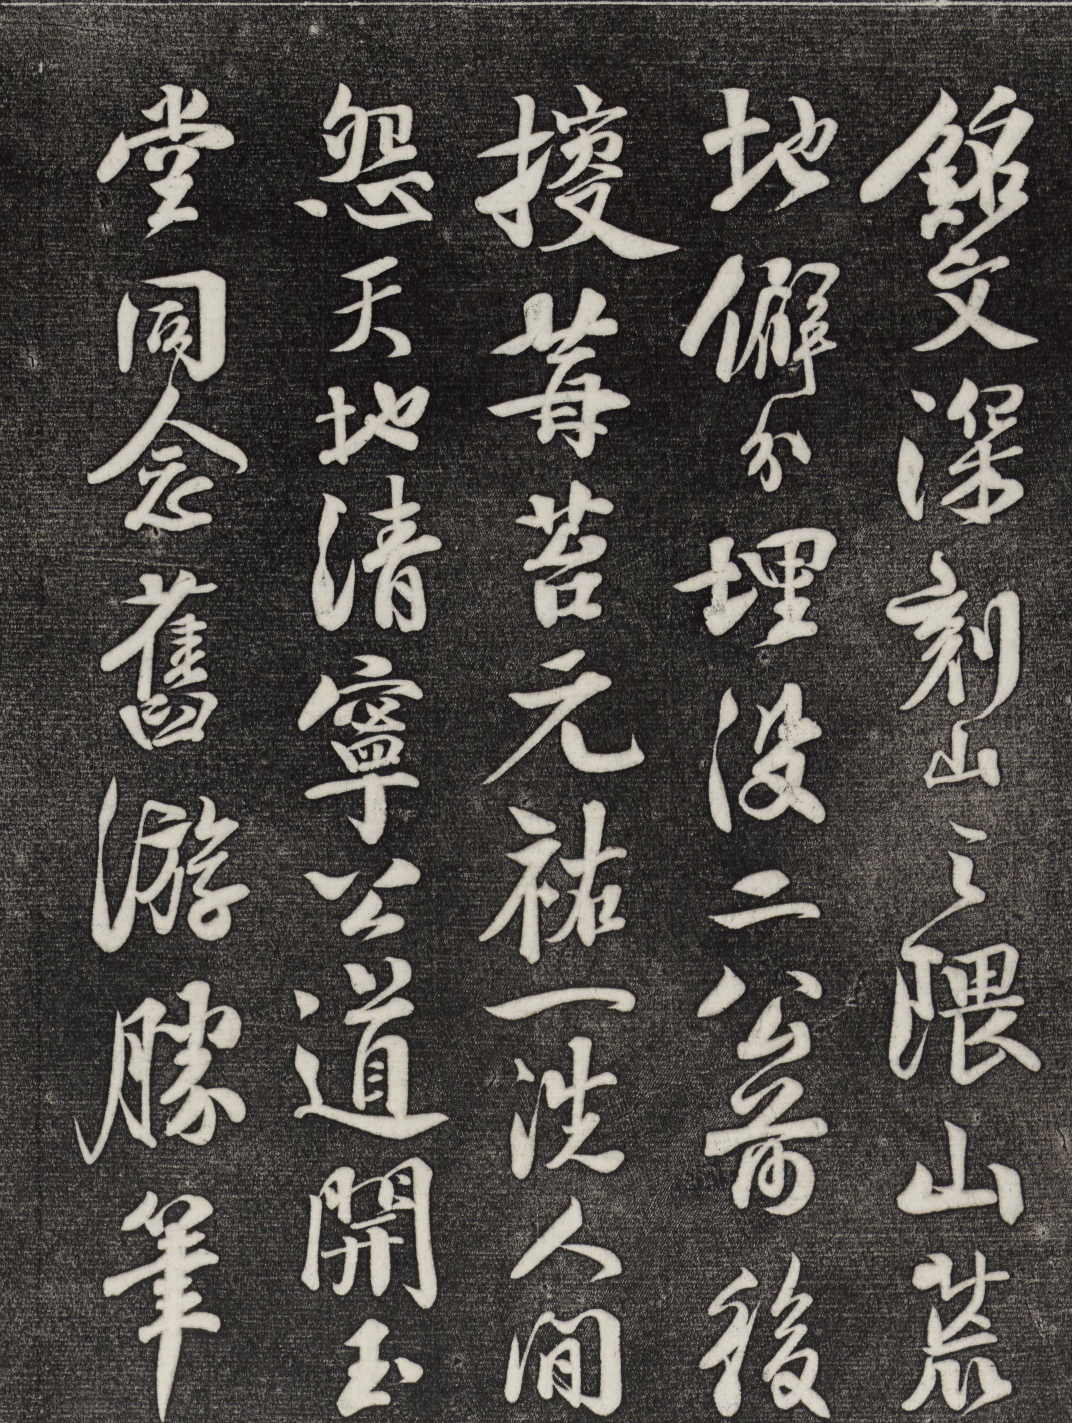 銘文深刻山之隈山荒
地僻分埋没二公前後
授莓苔元祐一洗人間
怨天地清寧公道開玉
堂同念舊游勝筆